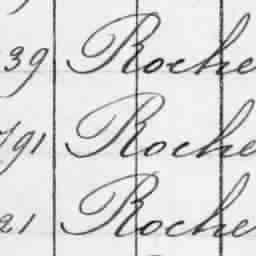 39 Roche
91 Roche
21 Roche